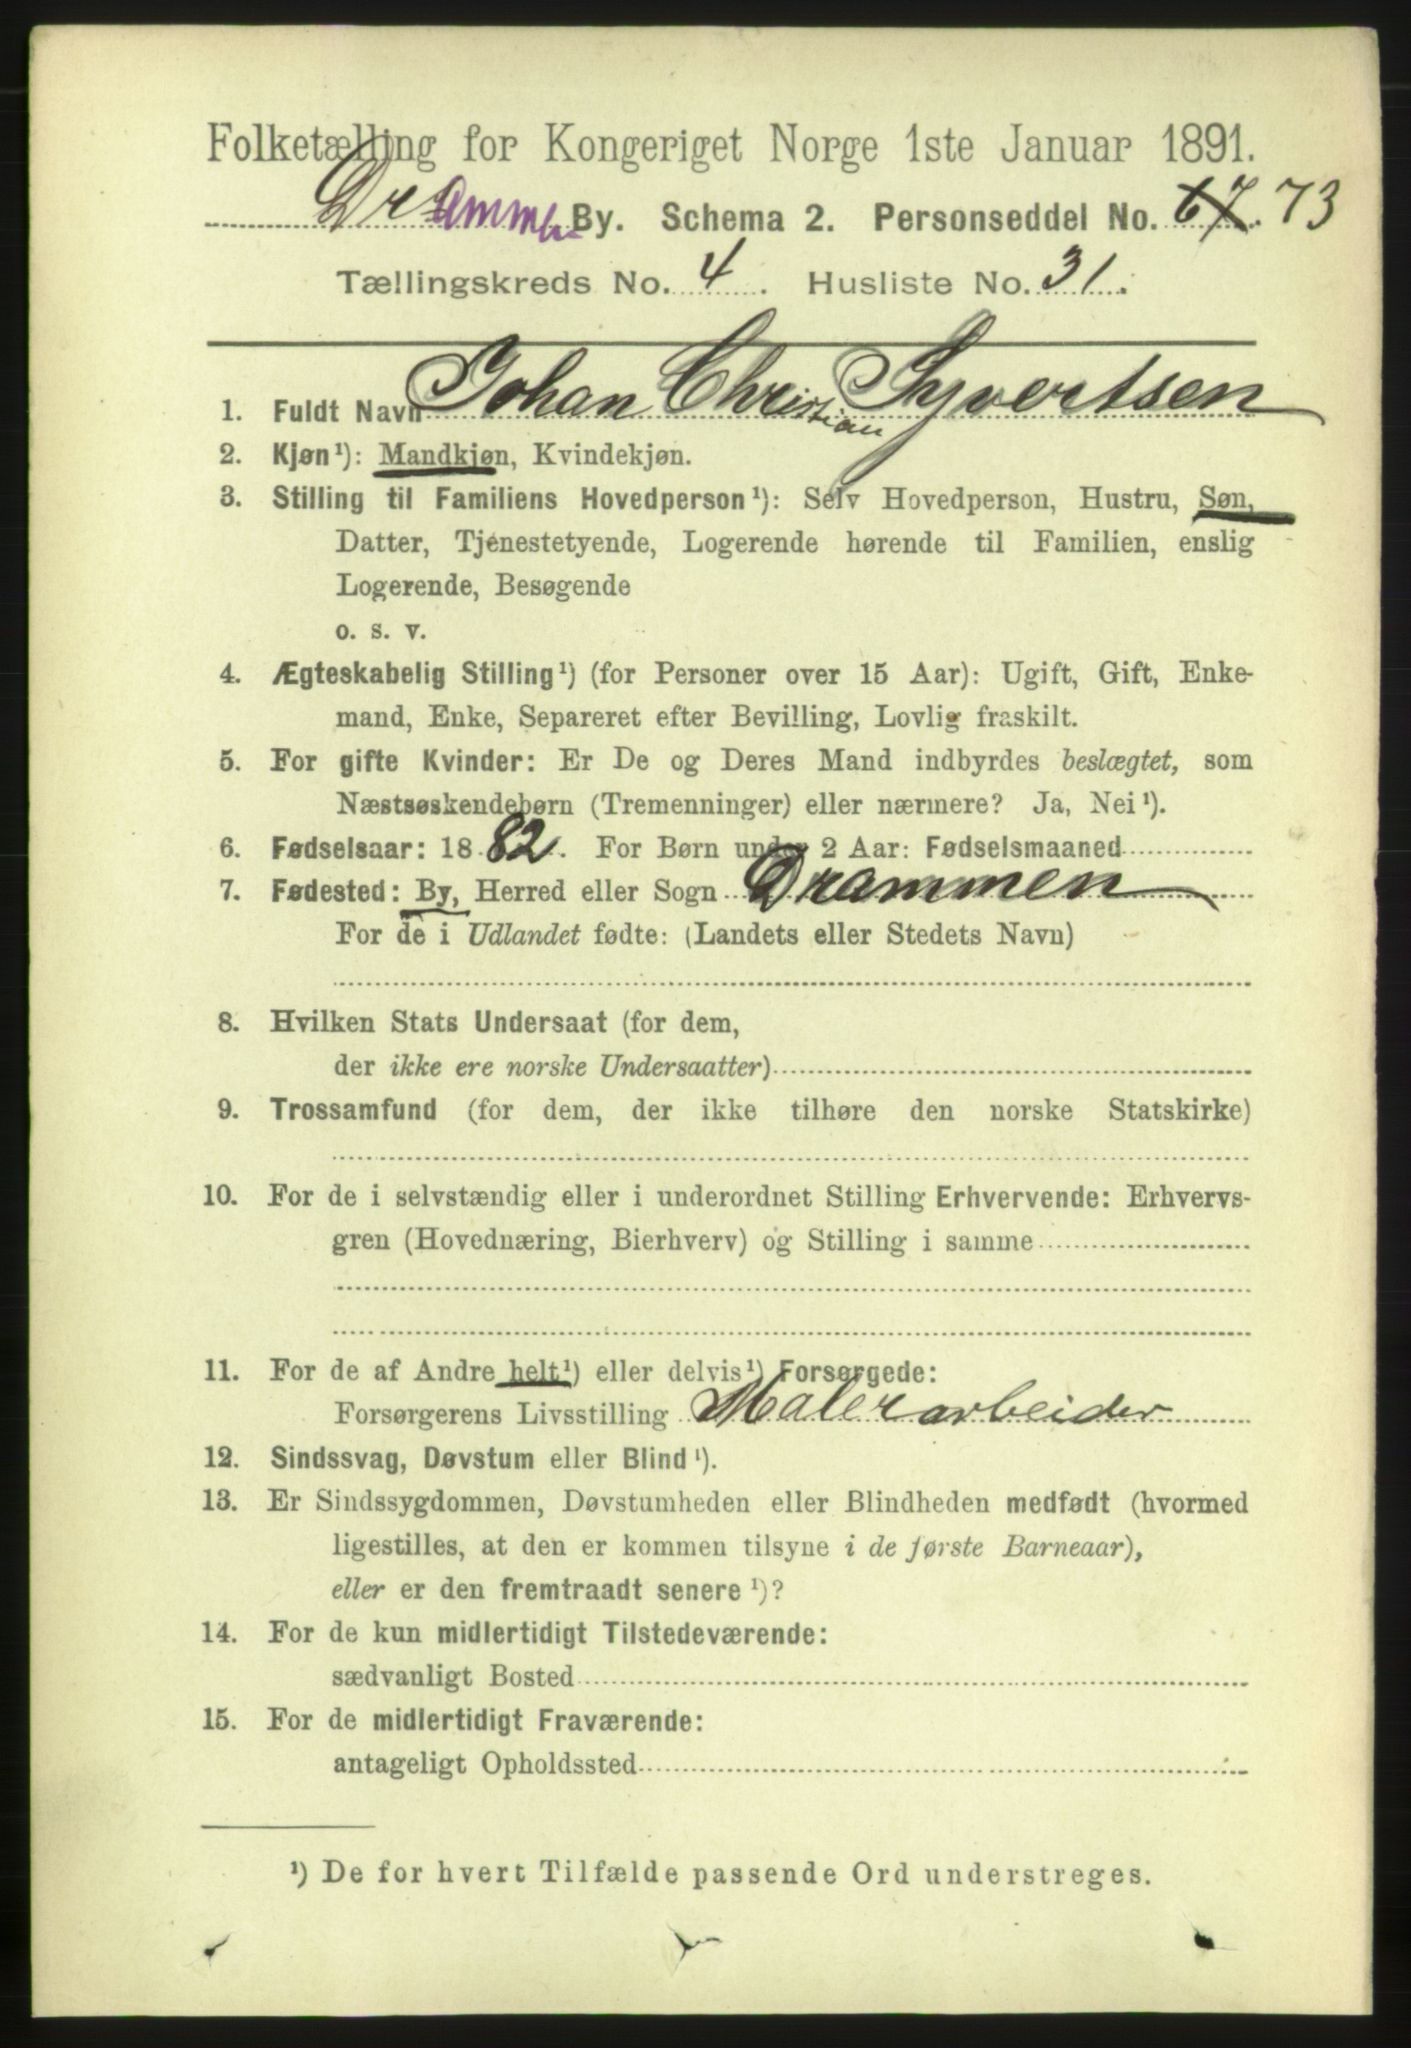 Folketælling for Kongeriget Norge 1ste Januar 1891.
Drammen By. Schema 2. Personseddel No. 67. 73
Tællingskreds No. 4. Husliste No. 31.
1. Fuldt Navn Johan Christian Syvertsen
2. Kjøn¹): Mandkjøn, Kvindekjøn.
3. Stilling til Familiens Hovedperson¹): Selv Hovedperson, Hustru, Søn,
Datter, Tjenestetyende, Logerende hørende til Familien, enslig
Logerende, Besøgende
o. s. v.
4. Ægteskabelig Stilling¹) (for Personer over 15 Aar): Ugift, Gift, Enke-
mand, Enke, Separeret efter Bevilling, Lovlig fraskilt.
5. For gifte Kvinder: Er De og Deres Mand indbyrdes beslægtet, som
Næstsøskendebørn (Tremenninger) eller nærmere? Ja, Nei¹).
6. Fødselsaar: 1882. For Børn under 2 Aar: Fødselsmaaned
7. Fødested: By, Herred eller Sogn Drammen
For de i Udlandet fødte: (Landets eller Stedets Navn)
8. Hvilken Stats Undersaat (for dem,
der ikke ere norske Undersaatter)
9. Trossamfund (for dem, der ikke tilhøre den norske Statskirke)
10. For de i selvstændig eller i underordnet Stilling Erhvervende: Erhvervs-
gren (Hovednæring, Bierhverv) og Stilling i samme
11. For de af Andre helt¹) eller delvis¹) Forsørgede:
Forsørgerens Livsstilling Malerarbeider
12. Sindssvag, Døvstum eller Blind¹).
13. Er Sindssygdommen, Døvstumheden eller Blindheden medfødt (hvormed
ligestilles, at den er kommen tilsyne i de første Barneaar),
eller er den fremtraadt senere¹)?
14. For de kun midlertidigt Tilstedeværende:
sædvanligt Bosted
15. For de midlertidigt Fraværende:
antageligt Opholdssted
¹) De for hvert Tilfælde passende Ord understreges.